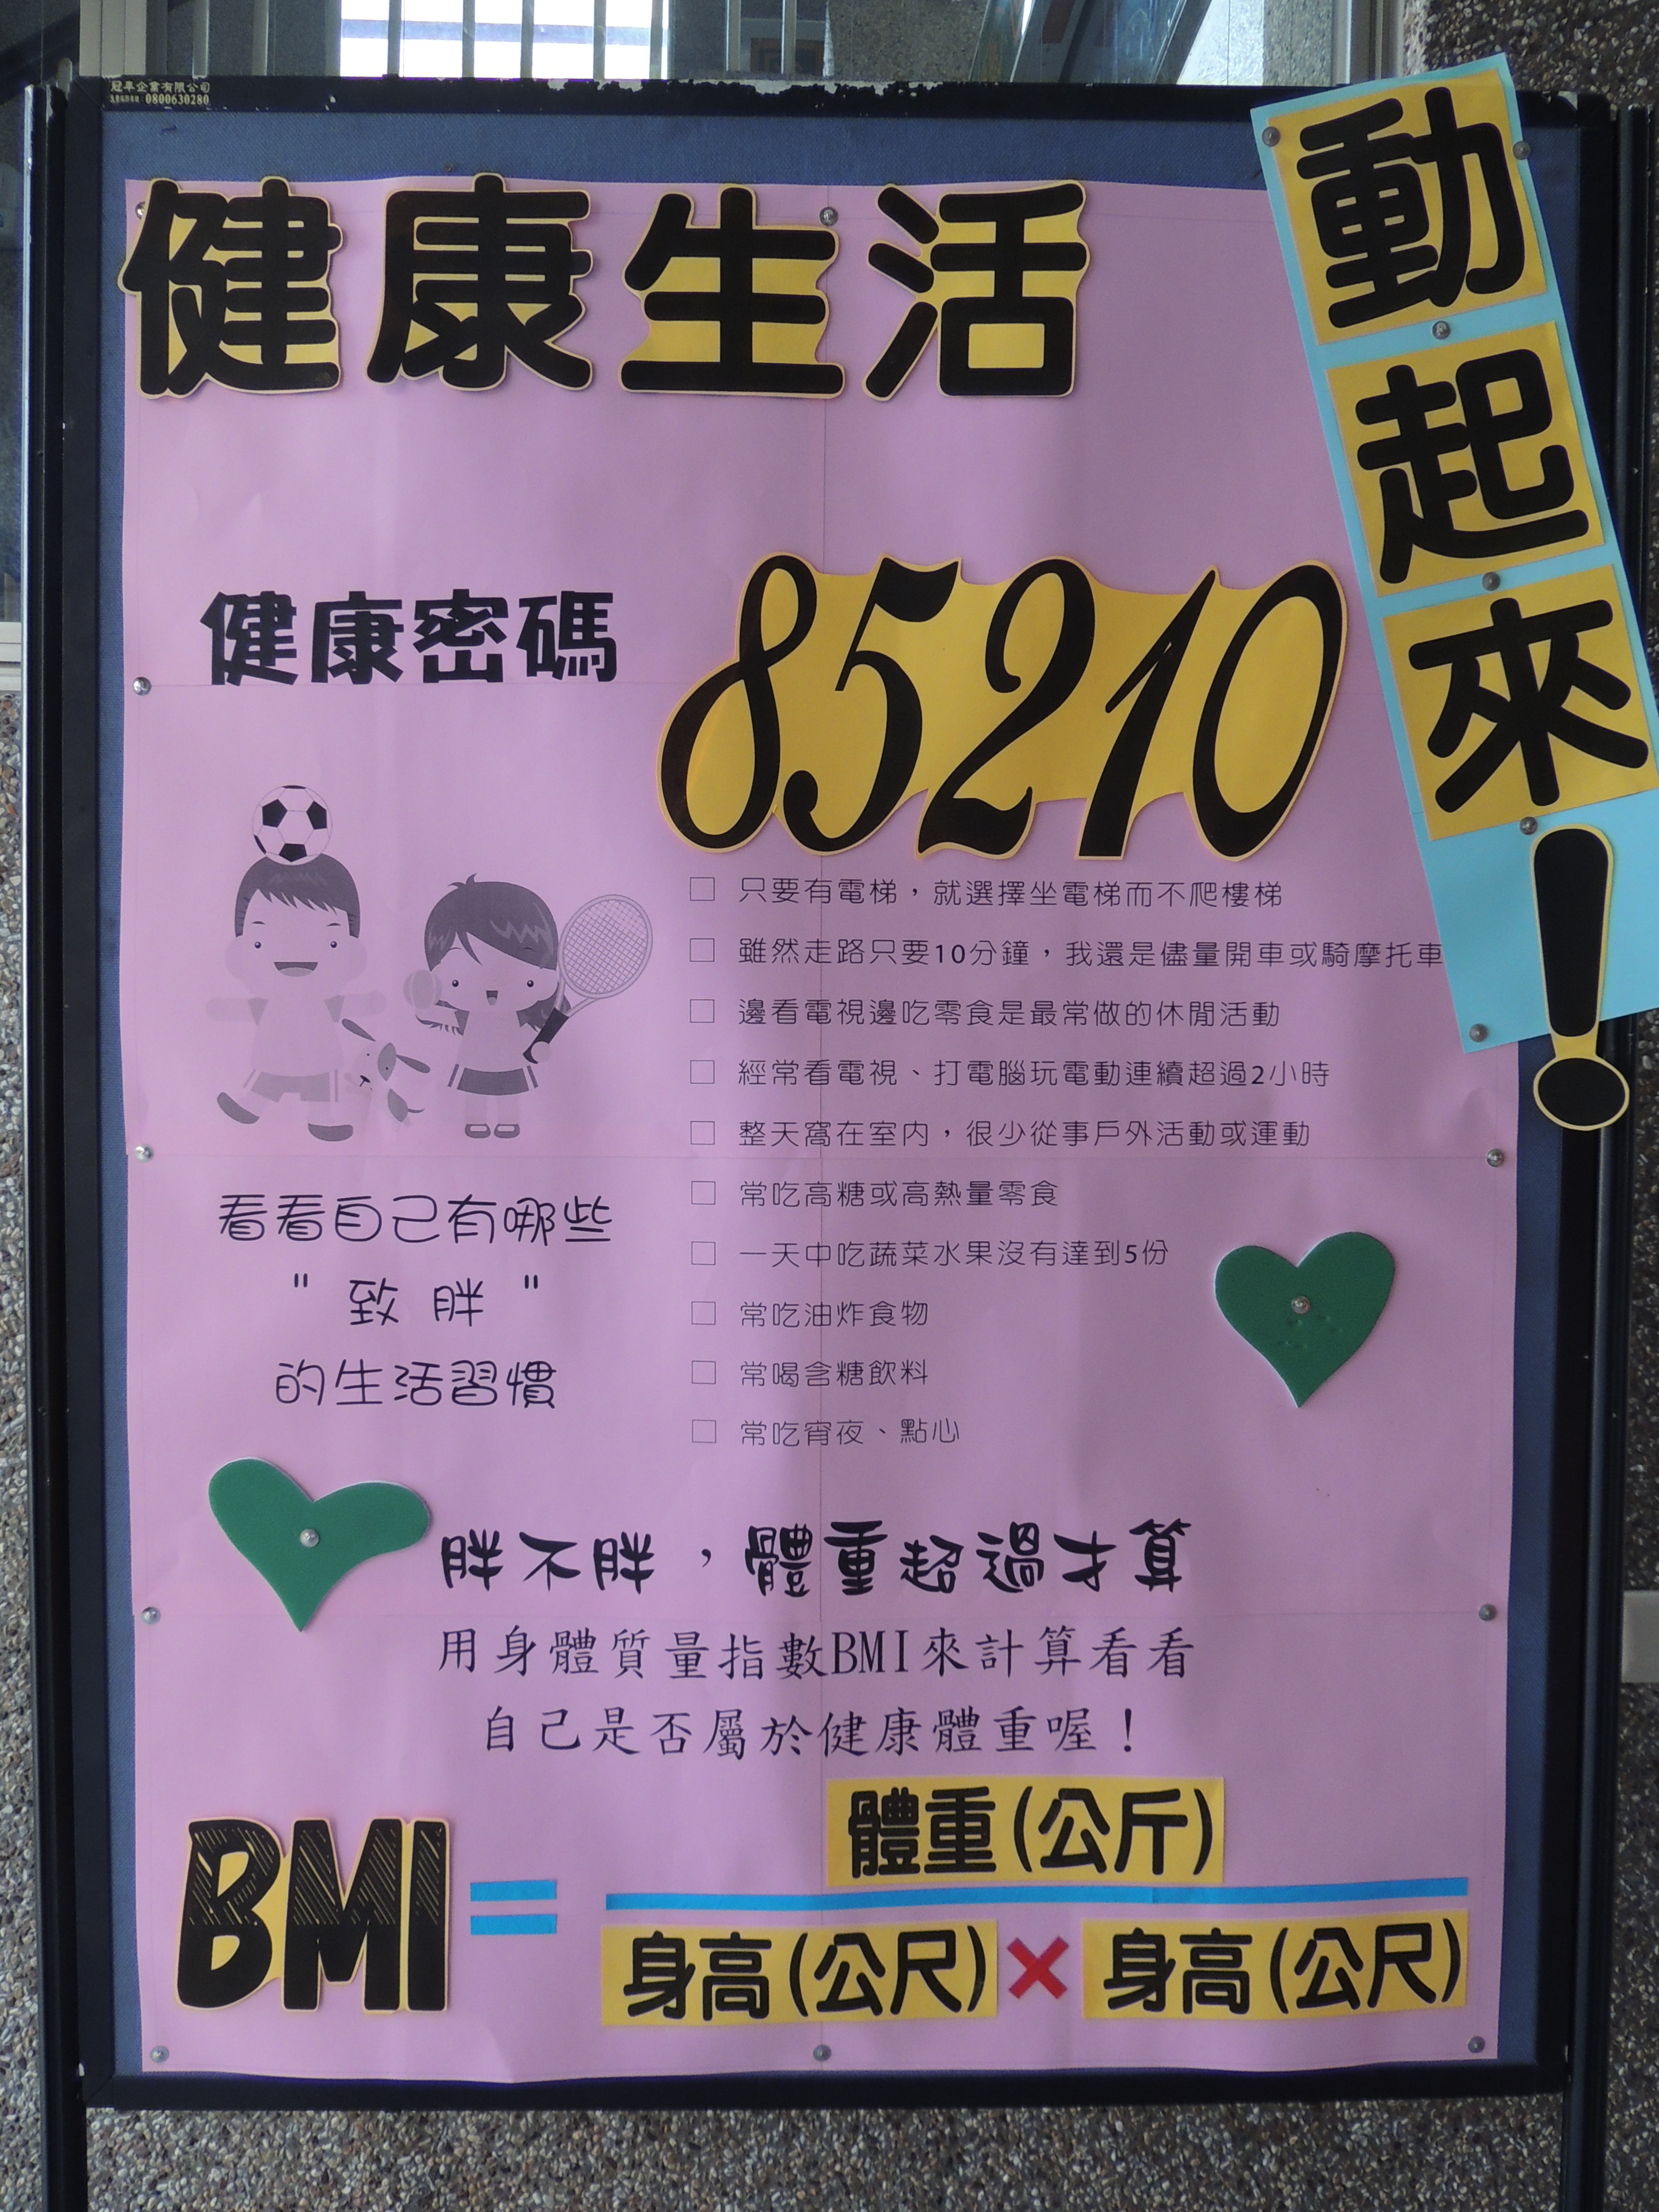 冠阜企業有限公司
0800630280
健康生活
動起來！
健康密碼
85210
□ 只要有電梯，就選擇坐電梯而不爬樓梯
□ 雖然走路只要10分鐘，我還是儘量開車或騎摩托車
□ 邊看電視邊吃零食是最常做的休閒活動
□ 經常看電視、打電腦玩電動連續超過2小時
□ 整天窩在室內，很少從事戶外活動或運動
□ 常吃高糖或高熱量零食
□ 一天中吃蔬菜水果沒有達到5份
□ 常吃油炸食物
□ 常喝含糖飲料
□ 常吃宵夜、點心
看看自己有哪些
"致胖"
的生活習慣
胖不胖，體重超過才算
用身體質量指數BMI來計算看看
自己是否屬於健康體重喔！
體重(公斤)
BMI=
身高(公尺)×身高(公尺)